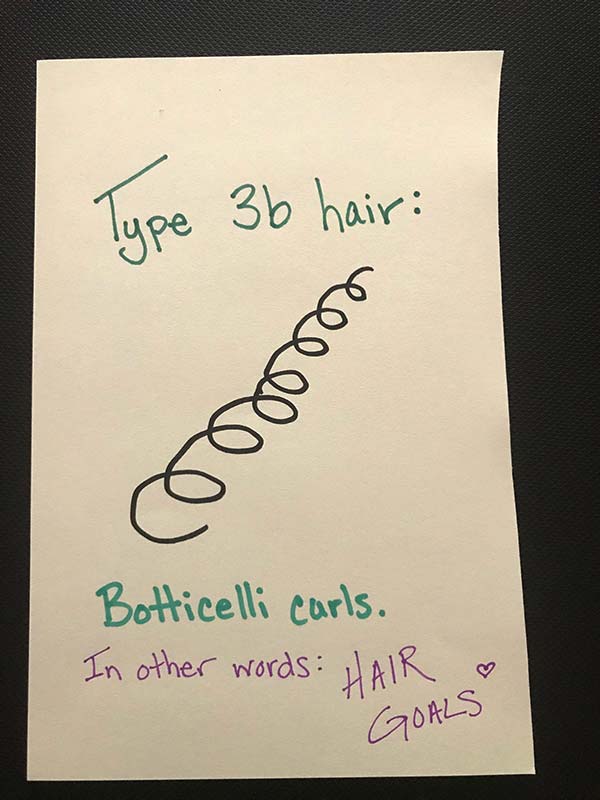 Type 3b hair:
Botticelli curls.
In other words: HAIR
GOALS